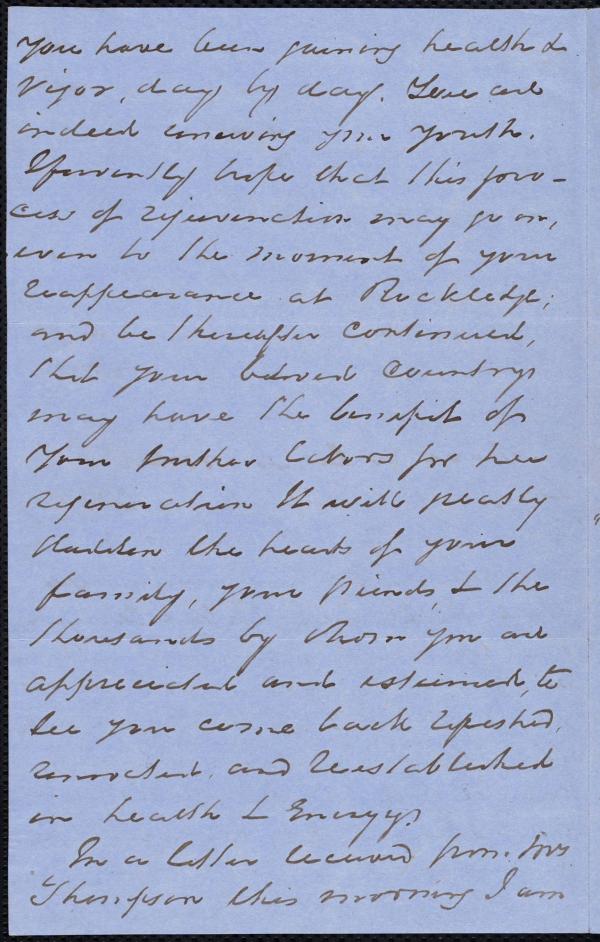 you have been gaining health &
vigor, day by day. You are
indeed renewing your youth.
I fervently hope that this pro-
cess of rejuvenation may go on,
even to the moment of your
reappearance at Rockledge;
and be thereafter continued,
that your beloved country
may have the benefit of
your further labors for her
regeneration It will greatly
gladden the hearts of your
family, your friends, & the
thousands by whom you are
appreciated and esteemed, to
see you come back refreshed,
renovated, and reestablished
in health & Energy.
In a letter received from Mrs
Thompson this morning I am